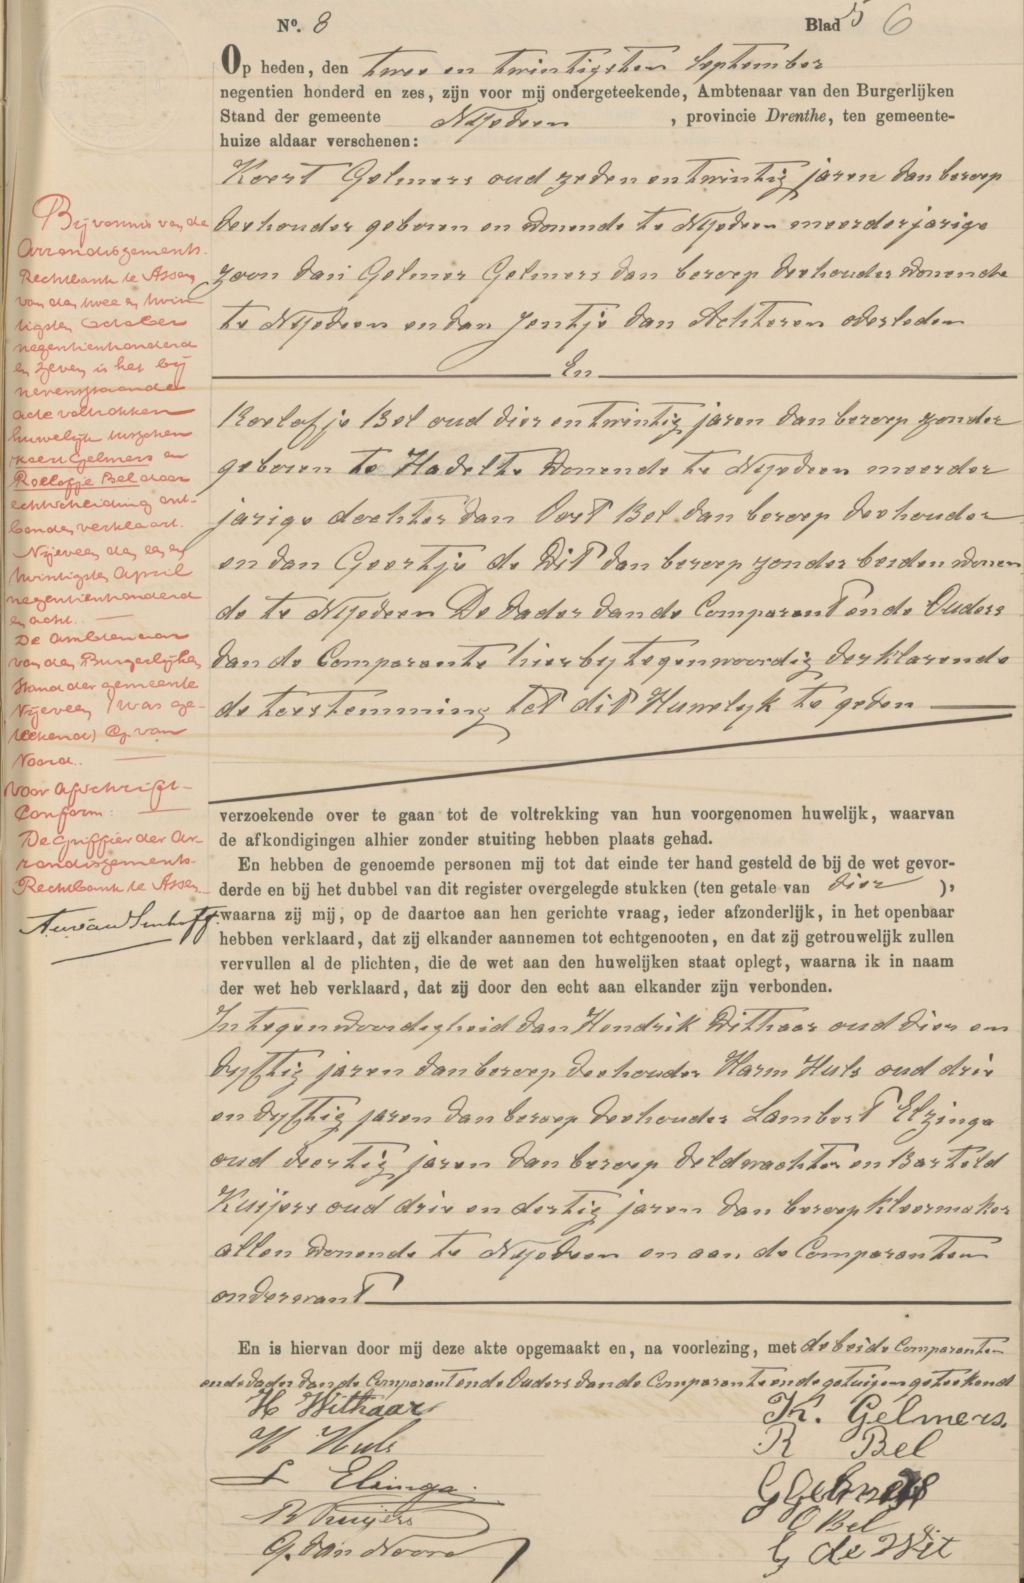 Nº. 8
Blad 5 6
Op heden, den twee en twintigsten September
negentien honderd en zes, zijn voor mij ondergeteekende, Ambtenaar van den Burgerlijken
Stand der gemeente Nijeveen, provincie Drenthe, ten gemeente-
huize aldaar verschenen:
Koert Gelmers oud zeven en twintig jaren van beroep
veehouder geboren en wonende te Nijeveen meerderjarige
zoon van Gelmer Gelmers van beroep veehouder wonende
te Nijeveen en van Jentje van Achteren overleden
En
Roelofje Bel oud vier en twintig jaren van beroep zonder
geboren te Havelte wonende te Nijeveen meerder
jarige dochter van Oost Bel van beroep veehouder
en van Geertje de Wit van beroep zonder beiden wonen
de te Nijeveen De Vader van de Comparant en de Ouders
van de Comparante hierbij tegenwoordig verklarende
de toestemming tot dit Huwelijk te geven
verzoekende over te gaan tot de voltrekking van hun voorgenomen huwelijk, waarvan
de afkondigingen alhier zonder stuiting hebben plaats gehad.
En hebben de genoemde personen mij tot dat einde ter hand gesteld de bij de wet gevor-
derde en bij het dubbel van dit register overgelegde stukken (ten getale van vier),
waarna zij mij, op de daartoe aan hen gerichte vraag, ieder afzonderlijk, in het openbaar
hebben verklaard, dat zij elkander aannemen tot echtgenooten, en dat zij getrouwelijk zullen
vervullen al de plichten, die de wet aan den huwelijken staat oplegt, waarna ik in naam
der wet heb verklaard, dat zij door den echt aan elkander zijn verbonden.
In tegenwoordigheid van Hendrik Withaar oud vier en
vijftig jaren van beroep veehouder Harm Huls oud drie
en vijftig jaren van beroep veehouder Lambert Elzinga
oud veertig jaren van beroep veldwachter en Barteld
Kuijers oud drie en dertig jaren van beroep kleermaker
allen wonende te Nijeveen en aan de Comparanten
onverwant
En is hiervan door mij deze akte opgemaakt en, na voorlezing, met de beide Comparanten
en de Vader van de Comparant en de Ouders van de Comparante en de getuigen geteekend
H Withaar
K. Gelmers.
H Huls
R Bel
L Elzinga.
G Gelmers
B Kuijers
O Bel
G. van Noord
G de Wit
Bij vonnis van de
Arrondissements-
Rechtbank te Assen
van den twee en twin
tigsten October
negentienhonderd
en zeven is het bij
nevenstaande
acte voltrokken
huwelijk tusschen
Koert Gelmers en
Roelofje Bel door
echtscheiding ont-
bonden verklaard.
Nijeveen den een en
twintigsten April
negentienhonderd
en acht.
De Ambtenaar
van den Burgerlijken
Stand der gemeente
Nijeveen (was ge-
teekend) G. van
Noord.
Voor afschrift
Conform:
De Griffier der Ar-
rondissements-
Rechtbank te Assen